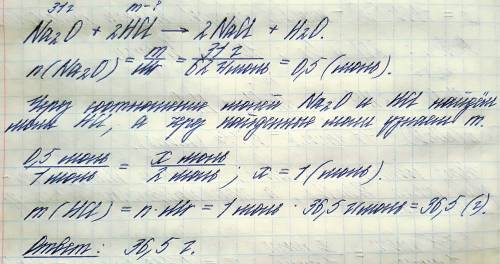 31 г m-?
Na₂O + 2HCl → 2NaCl + H₂O.
n(Na₂O) = m/Mr = 31 г/62 г/моль = 0,5 (моль).
Через соотношение молей Na₂O и HCl найдём
моли HCl, а через найденные моли узнаем m.
0,5 моль/1 моль = x моль/2 моль; x = 1 (моль).
m (HCl) = n · Mr = 1 моль · 36,5 г/моль = 36,5 (г).
Ответ: 36,5 г.